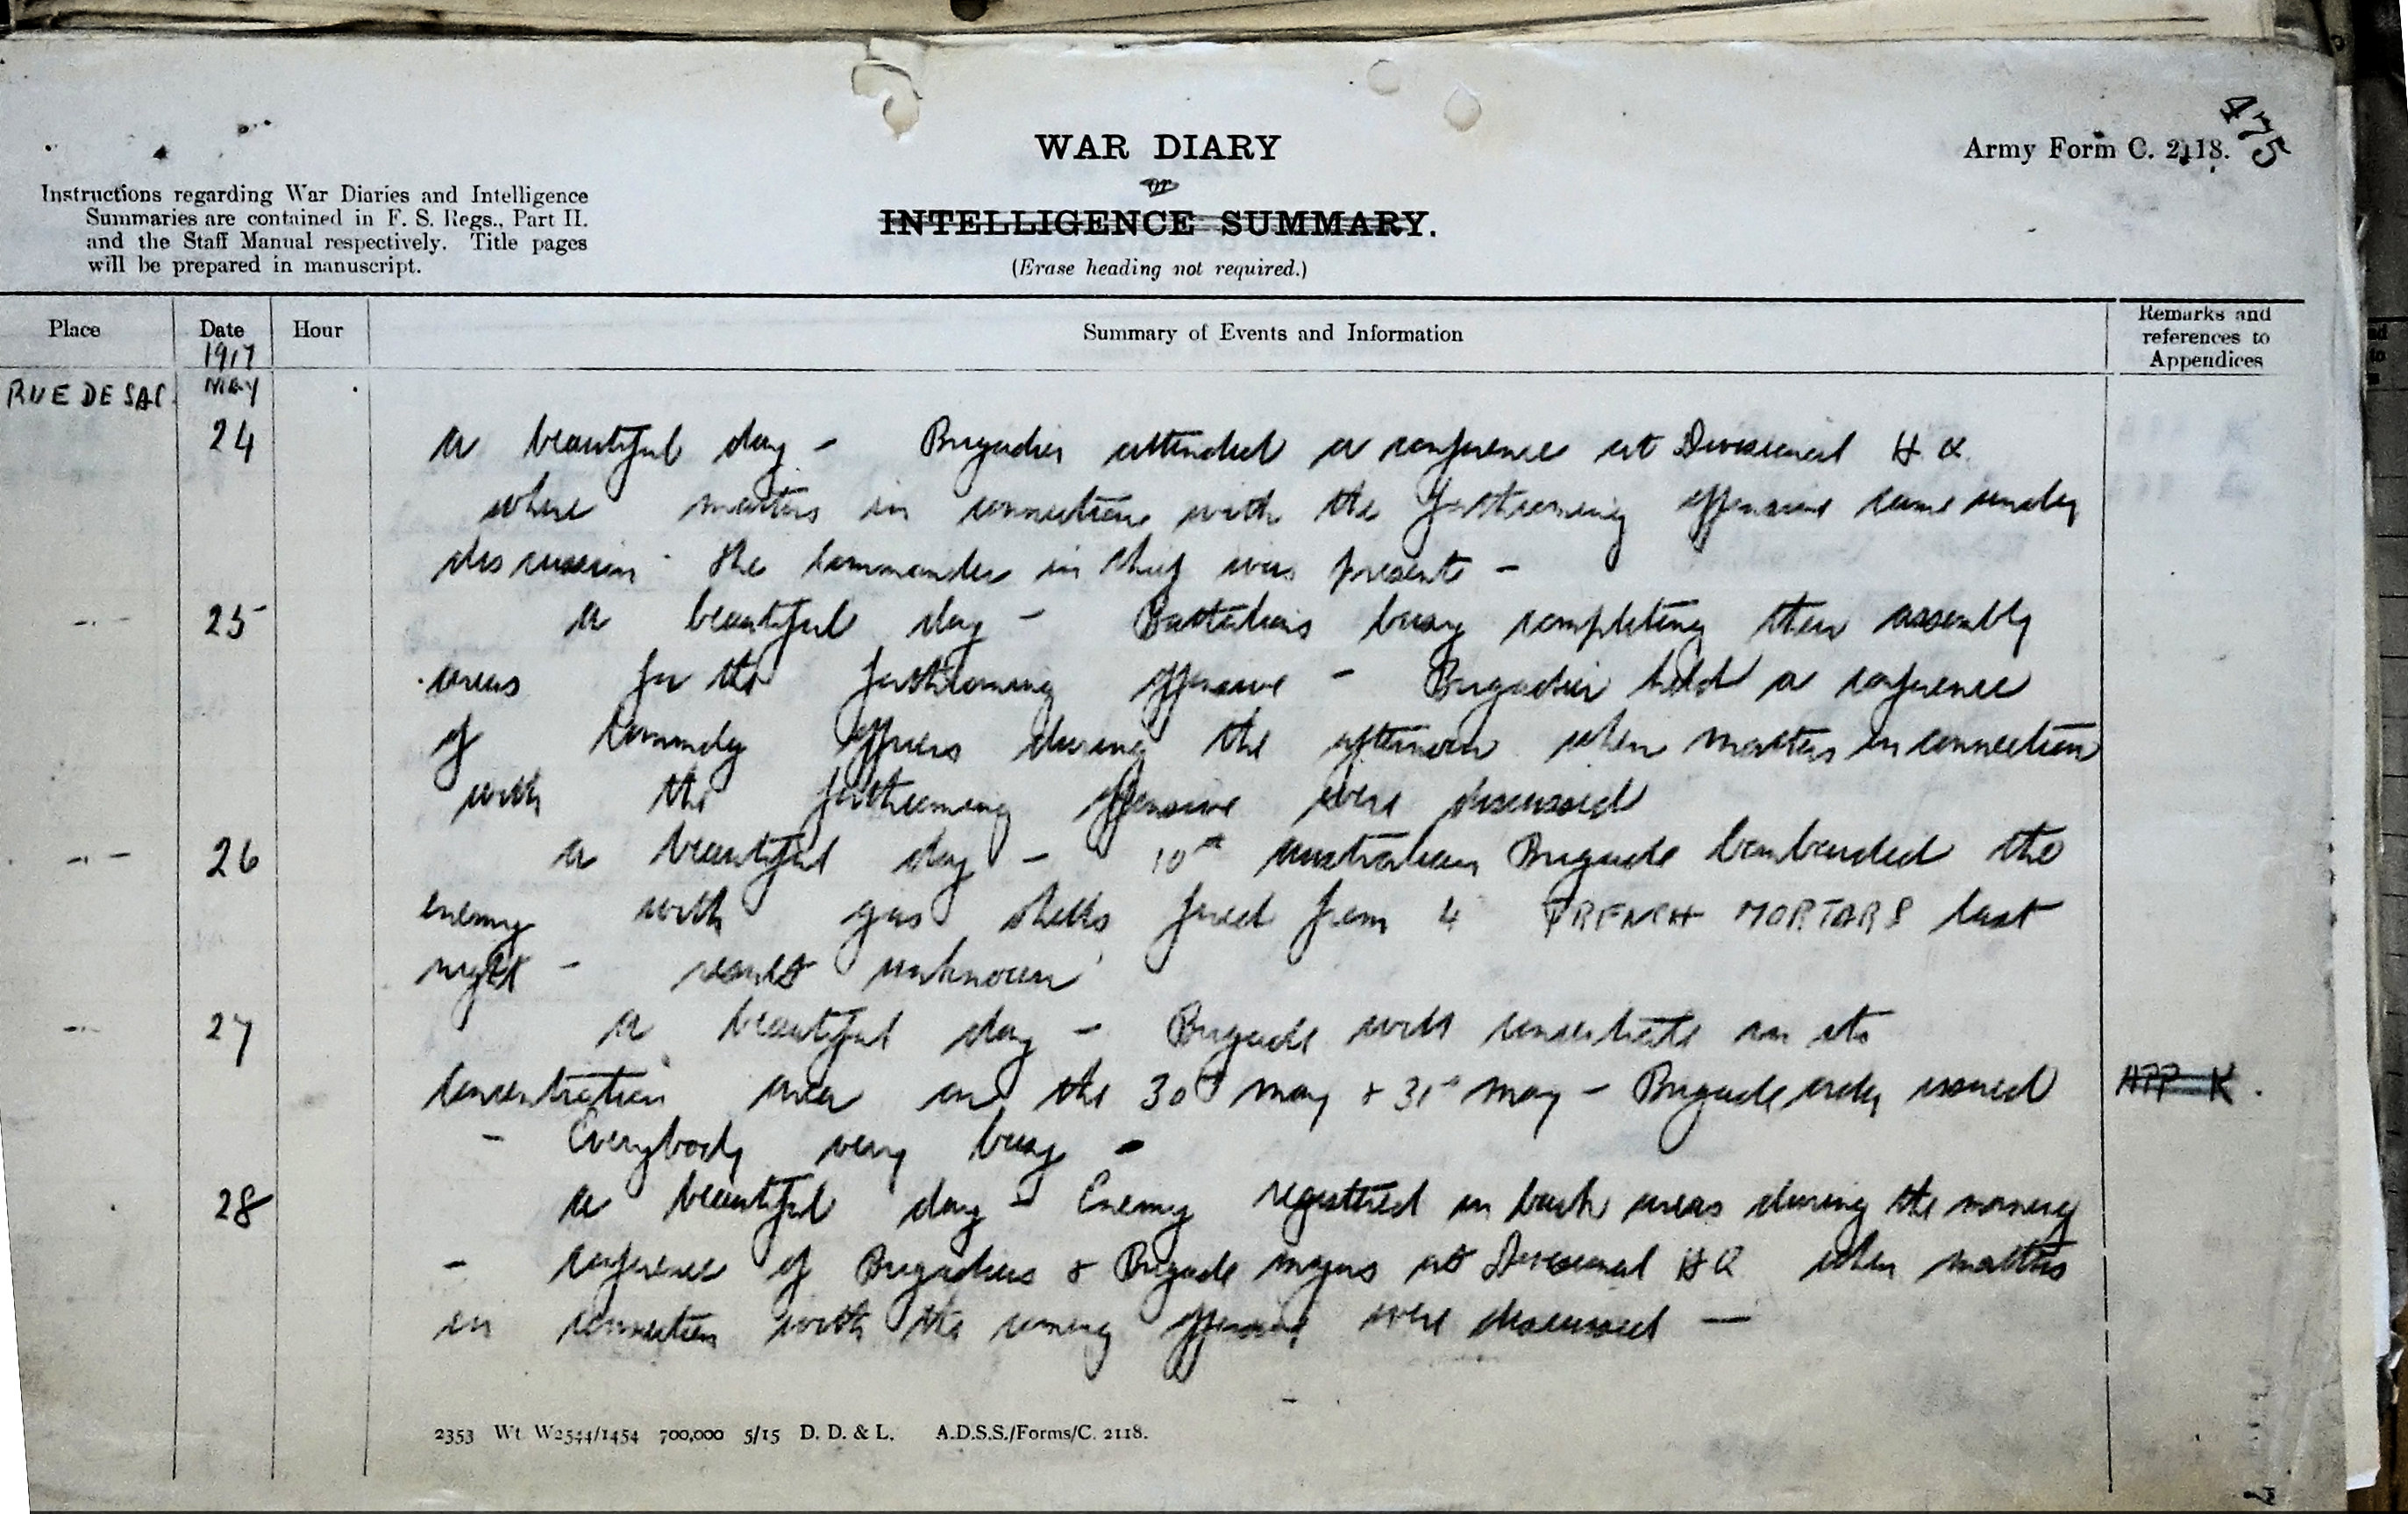 475
WAR DIARY
or
INTELLIGENCE SUMMARY.
(Erase heading not required.)
Army Form C. 2118.
Instructions regarding War Diaries and Intelligence
Summaries are contained in F. S. Regs., Part II.
and the Staff Manual respectively. Title pages
will be prepared in manuscript.
Place Date Hour Summary of Events and Information Remarks and references to Appendices
1917
RUE DE SAC. MAY
24 A beautiful day - Brigadier attended a conference at Divisional H.Q.
where matters in connection with the forthcoming offensive came under
discussion - the Commander in Chief was present -
-"- 25 A beautiful day - Battalions busy completing their assembly
areas for the forthcoming offensive - Brigadier held a conference
of Commdg Officers during the afternoon when matters in connection
with the forthcoming offensive were discussed
-"- 26 A beautiful day - 10th Australian Brigade bombarded the
enemy with gas shells fired from 4" TRENCH MORTARS last
night - result unknown
-"- 27 A beautiful day - Brigade will concentrate in its
concentration area on the 30th May & 31st May - Brigade order issued APP K.
- Everybody very busy -
28 A beautiful day - Enemy registered on back areas during the morning
- conference of Brigadiers & Brigade Majors at Divisional HQ when matters
in connection with the coming offensive were discussed -
2353 Wt. W2544/1454 700,000 5/15 D. D. & L. A.D.S.S./Forms/C. 2118.